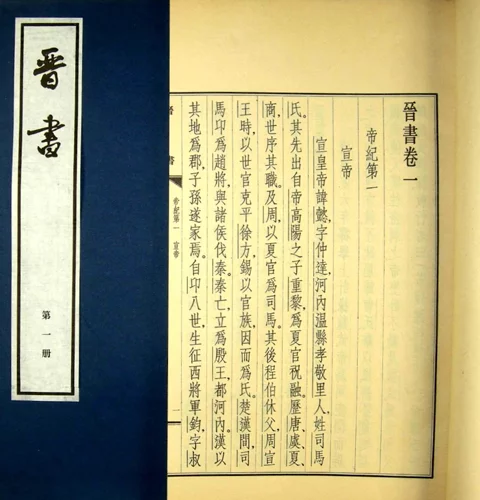 晉書
第一册
晉書卷一
帝紀第一
宣帝
宣皇帝諱懿,字仲達,河內溫縣孝敬里人,姓司馬
氏。其先出自帝高陽之子重黎,爲夏官祝融。歷唐、虞、夏、
商,世序其職。及周,以夏官爲司馬。其後程伯休父,周宣
王時,以世官克平徐方,錫以官族,因而爲氏。楚漢間,司
馬卬爲趙將,與諸侯伐秦。秦亡,立爲殷王,都河內。漢以
其地爲郡,子孫遂家焉。自卬八世,生征西將軍鈞,字叔
晉書
帝紀第一 宣帝
一